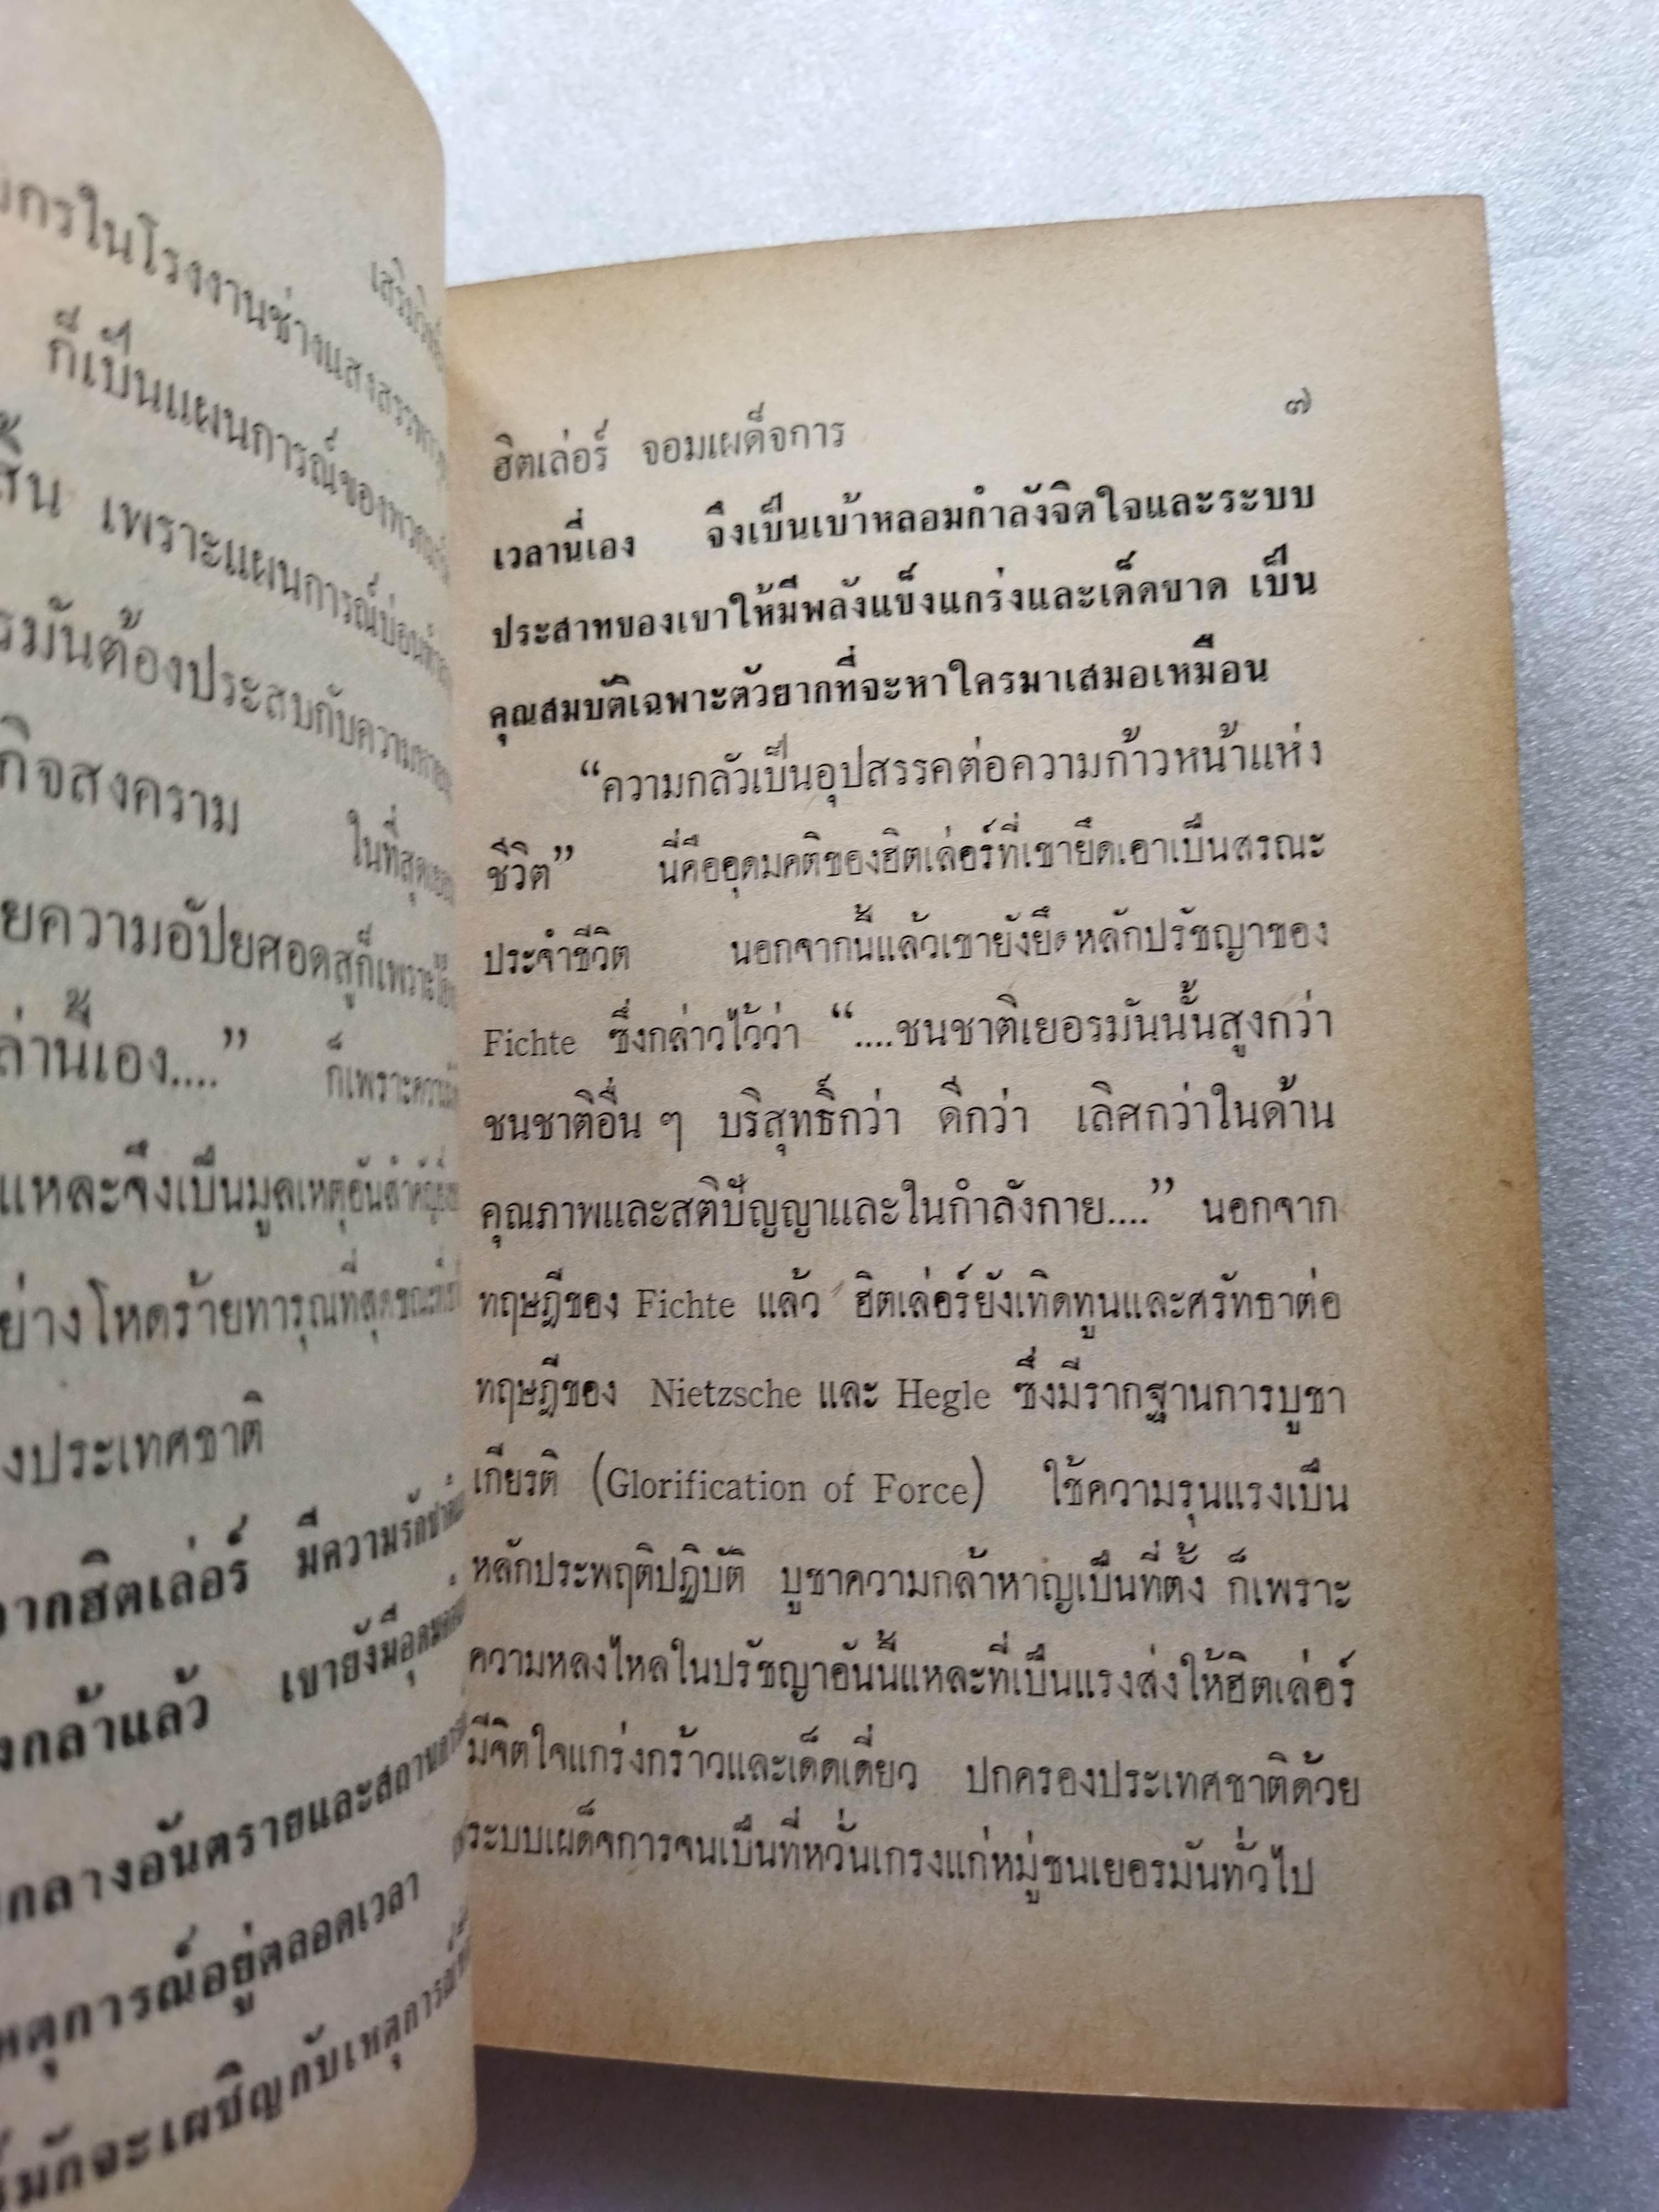 กรในโรงงานช่างแสงสรรพา
ก็เป็นแผนการณ์ของพวก
สิ้น เพราะแผนการณ์บ่อนทำลาย
รมันต้องประสบกับความ
กิจสงคราม ในที่สุด
ยความอัปยศอดสูก็เพราะ
ล่านี้เอง....” ก็เพราะความ
แหละจึงเป็นมูลเหตุอันสำคัญ
ย่างโหดร้ายทารุณที่สุด
งประเทศชาติ
ากฮิตเล่อร์ มีความรัก
งกล้าแล้ว เขายังมีอุดม
กลางอันตรายและสถาน
หตุการณ์อยู่ตลอดเวลา
มักจะเผชิญกับเหตุการณ์
ฮิตเล่อร์ จอมเผด็จการ ๗
เวลานี่เอง จึงเป็นเบ้าหลอมกำลังจิตใจและระบบ
ประสาทของเขาให้มีพลังแข็งแกร่งและเด็ดขาด เป็น
คุณสมบัติเฉพาะตัวยากที่จะหาใครมาเสมอเหมือน
“ความกลัวเป็นอุปสรรคต่อความก้าวหน้าแห่ง
ชีวิต” นี่คืออุดมคติของฮิตเล่อร์ที่เขายึดเอาเป็นสรณะ
ประจำชีวิต นอกจากนี้แล้วเขายังยึดหลักปรัชญาของ
Fichte ซึ่งกล่าวไว้ว่า “....ชนชาติเยอรมันนั้นสูงกว่า
ชนชาติอื่น ๆ บริสุทธิ์กว่า ดีกว่า เลิศกว่าในด้าน
คุณภาพและสติปัญญาและในกำลังกาย....” นอกจาก
ทฤษฎีของ Fichte แล้ว ฮิตเล่อร์ยังเทิดทูนและศรัทธาต่อ
ทฤษฎีของ Nietzsche และ Hegle ซึ่งมีรากฐานการบูชา
เกียรติ (Glorification of Force) ใช้ความรุนแรงเป็น
หลักประพฤติปฏิบัติ บูชาความกล้าหาญเป็นที่ตั้ง ก็เพราะ
ความหลงไหลในปรัชญาอันนี้แหละที่เป็นแรงส่งให้ฮิตเล่อร์
มีจิตใจแกร่งกร้าวและเด็ดเดี่ยว ปกครองประเทศชาติด้วย
ระบบเผด็จการจนเป็นที่หวั่นเกรงแก่หมู่ชนเยอรมันทั่วไป